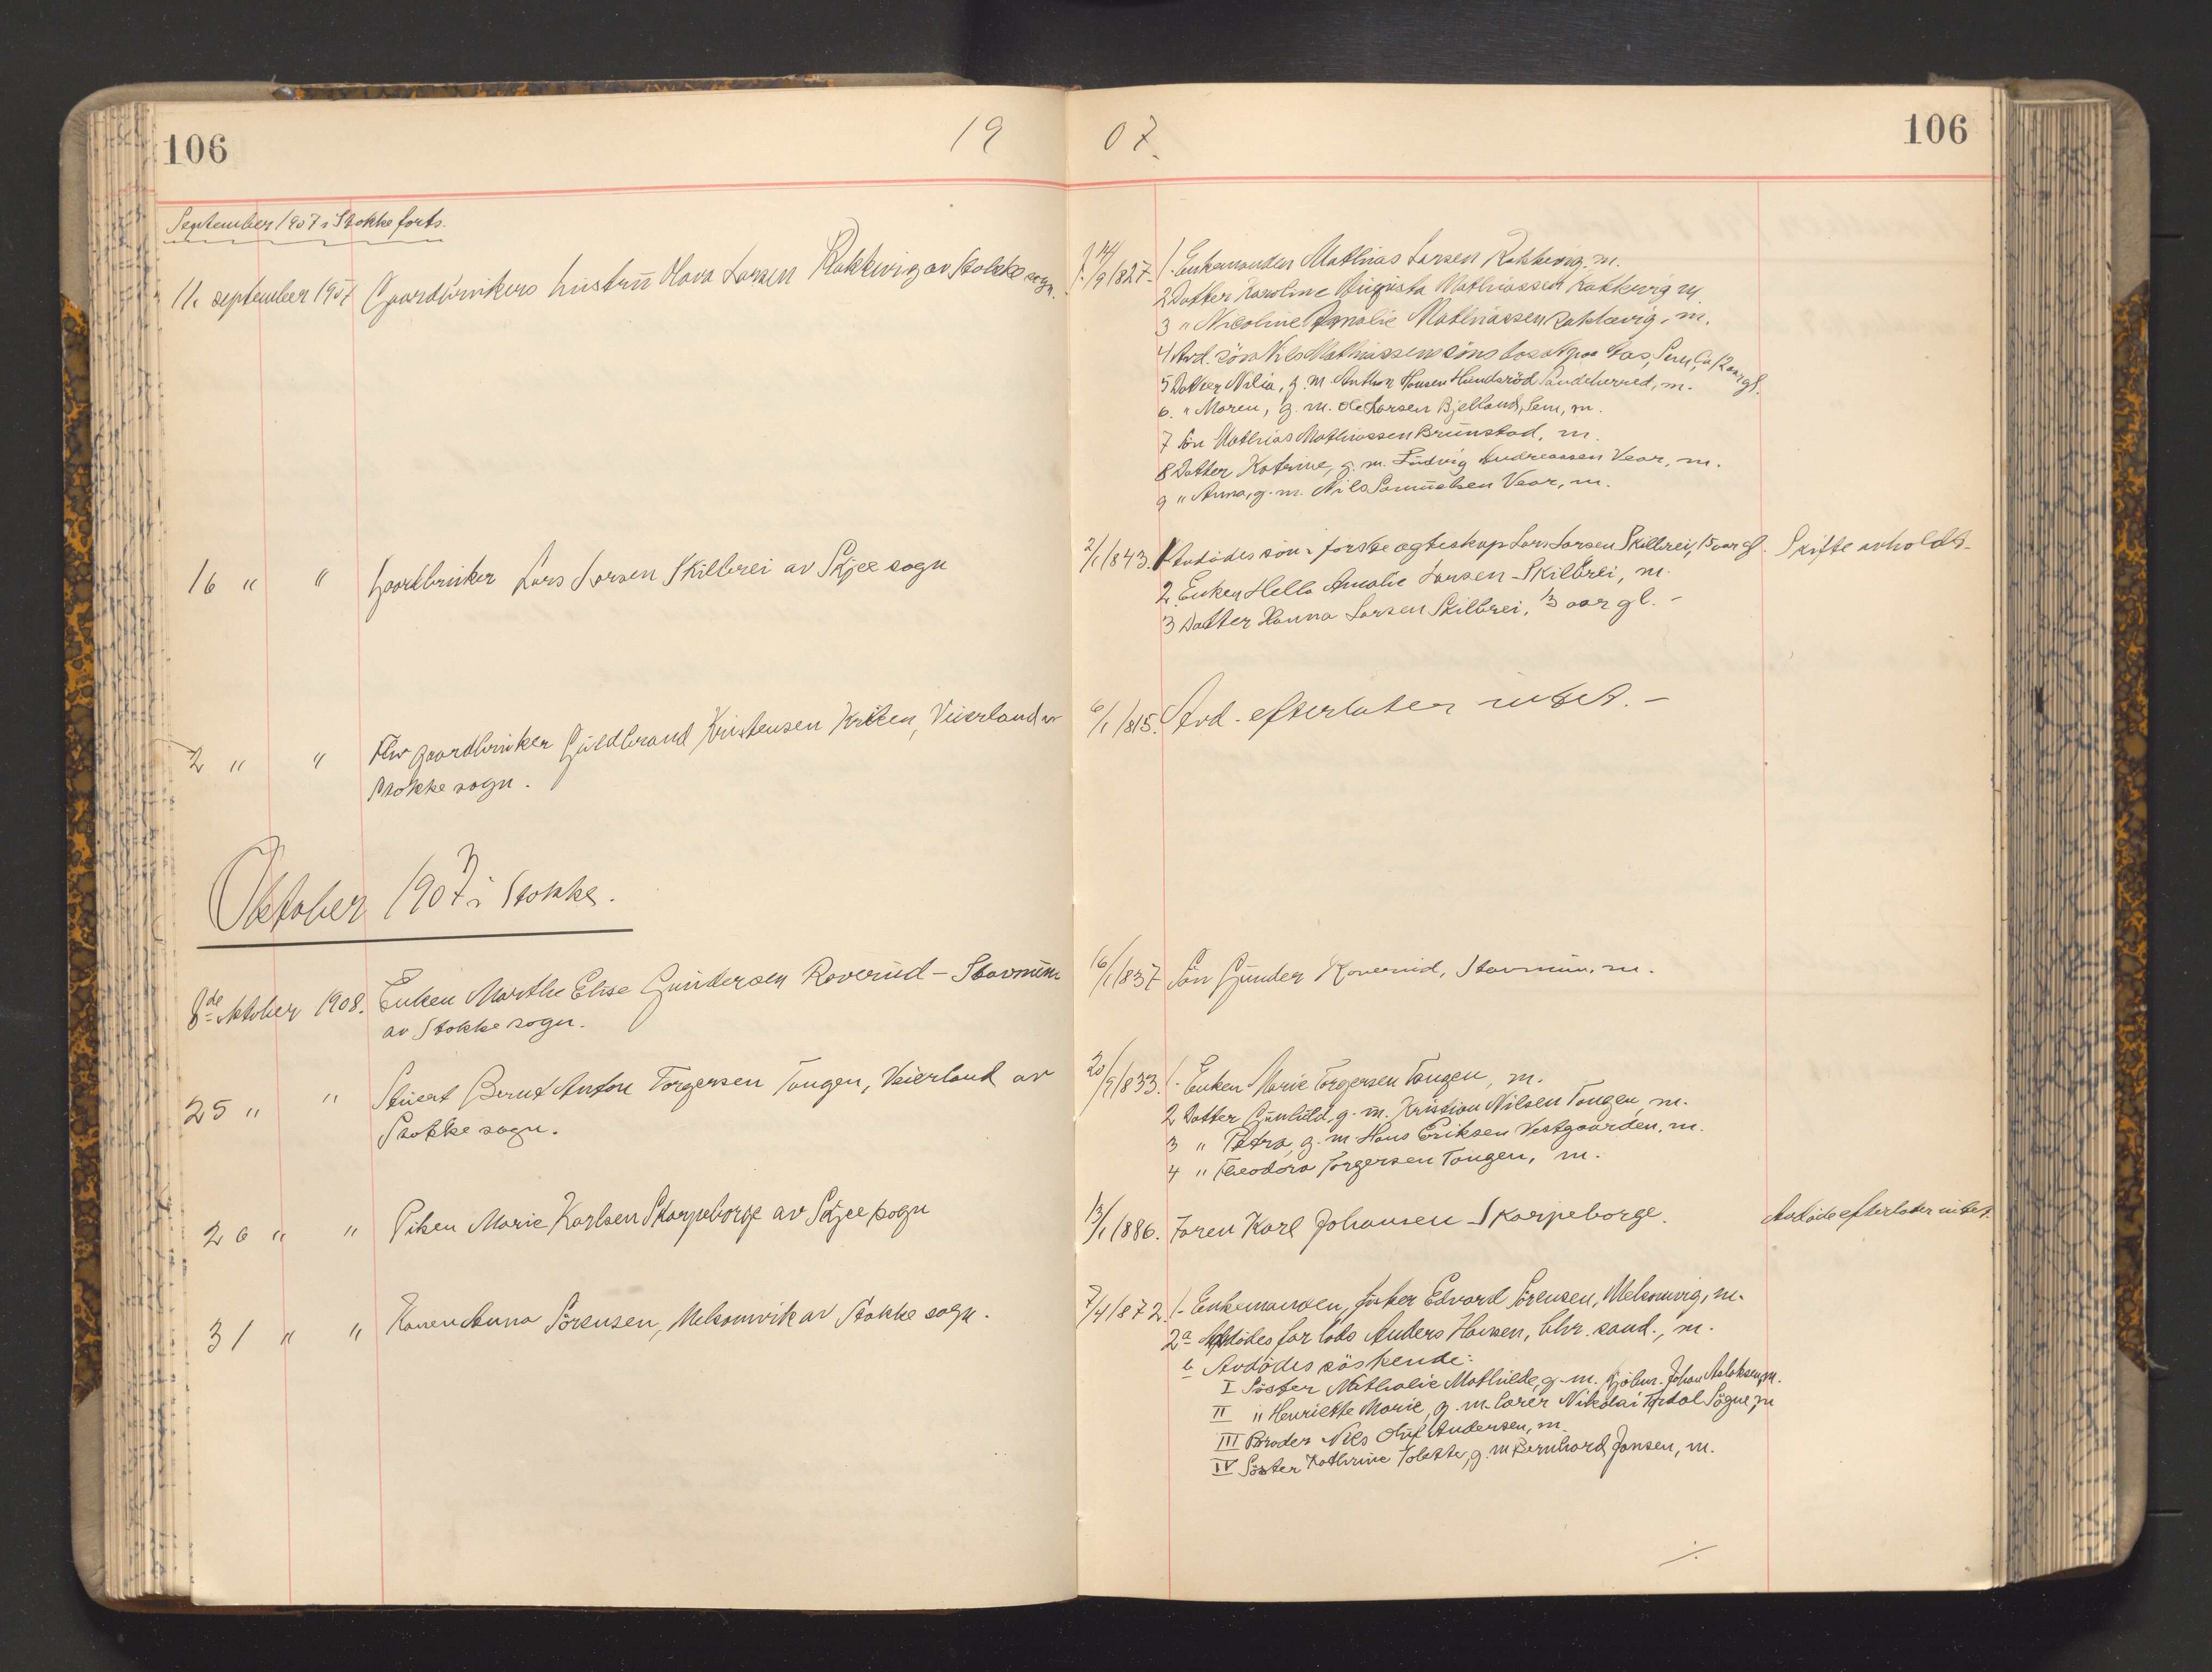 106
19
07.
106
September 1907 i Stokke forts.
11. september 1907 Gaardbrukers hustru Olava Larsen Rakkevig av Stokke sogn.
f. 14/9 1827. 1. Enkemanden Mathias Larsen Rakkevig, m.
2 Datter Karoline Augusta Mathiassen Rakkevig m.
3 " Nicoline Amalie Mathiassen Rakkevig, m.
4 Avd. søn Nils Mathiassens søns bosat paa Gas, Sem, Ca 12 aar gl.
5 Datter Nilia, g. m. Anthon Hansen Hundsröd Sandeherred, m.
6. " Maren, g. m. Ole Larsen Bjelland, Sem, m.
7 Sön Mathias Mathiassen Brunstad, m.
8 Datter Katrine, g. m. Ludvig Andreassen Vear, m.
9 " Anna, g. m. Nils Samuelsen Vear, m.
16 " " Gaardbruker Lars Larsen Skilbrei av Skjee sogn
2/1 1843. 1 Avdödes sön i forste egteskap Lars Larsen Skilbrei, 15 aar gl. Skifte avholdt.
2. Enken Hella Amalie Larsen Skilbrei, m.
3 Datter Hanna Larsen Skilbrei, 13 aar gl. -
2 " " Fhv gaardbruker Guldbrand Kristensen Kriken, Veierland av
Stokke sogn.
6/1 1815. Avd. efterlater intet. -
Oktober 1907 i Stokke.
8de oktober 1908. Enken Marthe Elise Gundersen Roverud - Stavnum
av Stokke sogn.
16/1 1837 Sön Gunder Roverud, Stavnum, m.
25 " " Stuert Bernt Anton Torgersen Tangen, Veierland av
Stokke sogn.
20/9 1833. 1. Enken Marie Torgersen Tangen, m.
2 Datter Gunhild, g. m. Kristian Nilsen Tangen, m.
3 " Petra, g. m. Hans Eriksen Vestgaarden, m.
4 " Theodora Torgersen Tangen, m.
26 " " Piken Marie Karlsen Skarpeborge av Skjee sogn
13/1 1886. Faren Karl Johansen Skarpeborge. Avdöde efterlater intet.
31 " " Konen Anna Sörensen, Melsomvik av Stokke sogn.
7/4 1872. 1. Enkemanden, fisker Edvard Sörensen, Melsomvig, m.
2 a Avdödes far lods Anders Hansen, Chr. sand., m.
b Avdödes söskende:
I Söster Nathalie Mathilde, g. m. Johan Aslaksen, m.
II " Henriette Marie, g. m. lærer Nikolai Sögne, m
III Broder Nils Oluf Andersen, m.
IV Söster Kathrine Tolette, g. m. Bernhard Jansen, m.
./.